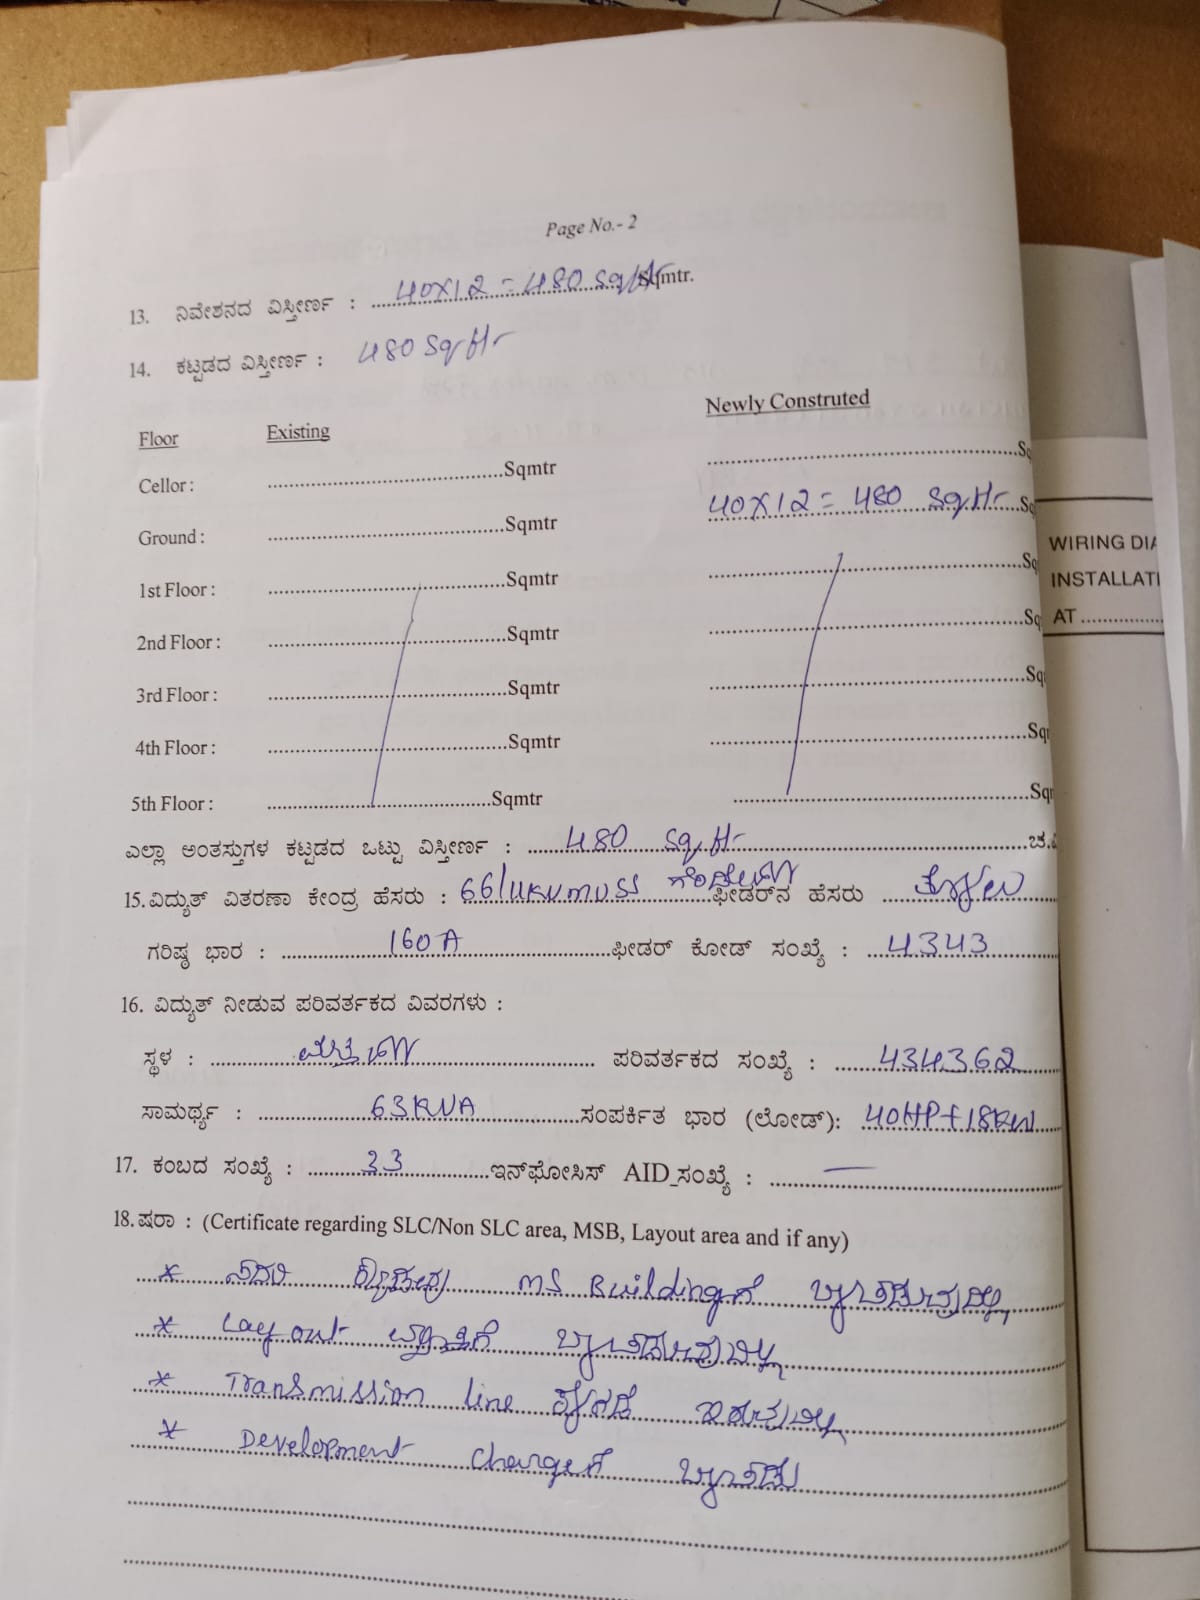 Page No.- 2
13. ನಿವೇಶನದ ವಿಸ್ತೀರ್ಣ : 40X12 = 480 Sqftr Sqmtr.
14. ಕಟ್ಟಡದ ವಿಸ್ತೀರ್ಣ : 480 Sqftr
Floor Existing Newly Construted
Cellor : ....Sqmtr ....Sq
Ground : ....Sqmtr 40X12 = 480 Sqftr....Sq
1st Floor : ....Sqmtr ....Sq
2nd Floor : ....Sqmtr ....Sq
3rd Floor : ....Sqmtr ....Sq
4th Floor : ....Sqmtr ....Sq
5th Floor : ....Sqmtr ....Sq
ಎಲ್ಲಾ ಅಂತಸ್ತುಗಳ ಕಟ್ಟಡದ ಒಟ್ಟು ವಿಸ್ತೀರ್ಣ : 480 Sq.ftr ....ಚ.
15. ವಿದ್ಯುತ್ ವಿತರಣಾ ಕೇಂದ್ರ ಹೆಸರು : 66/11KV MUSS ಫೀಡರ್‌ನ ಹೆಸರು
ಗರಿಷ್ಠ ಭಾರ : 160A ಫೀಡರ್ ಕೋಡ್ ಸಂಖ್ಯೆ : 4343
16. ವಿದ್ಯುತ್ ನೀಡುವ ಪರಿವರ್ತಕದ ವಿವರಗಳು :
ಸ್ಥಳ : .... ಪರಿವರ್ತಕದ ಸಂಖ್ಯೆ : 434362
ಸಾಮರ್ಥ್ಯ : 63KVA ಸಂಪರ್ಕಿತ ಭಾರ (ಲೋಡ್): 40HP+18KW
17. ಕಂಬದ ಸಂಖ್ಯೆ : 33 ಇನ್‌ಫೋಸಿಸ್ AID_ಸಂಖ್ಯೆ : —
18. ಷರಾ : (Certificate regarding SLC/Non SLC area, MSB, Layout area and if any)
* ಸದರಿ MS Buildingಗೆ ಒಳಪಡುವುದಿಲ್ಲ
* Layout ಒಳಪಡುವುದಿಲ್ಲ
* Transmission line ಕೆಳಗಡೆ ಇರುವುದಿಲ್ಲ
* Development Chargeಗೆ ಒಳಪಡು
WIRING DIA
INSTALLATI
AT